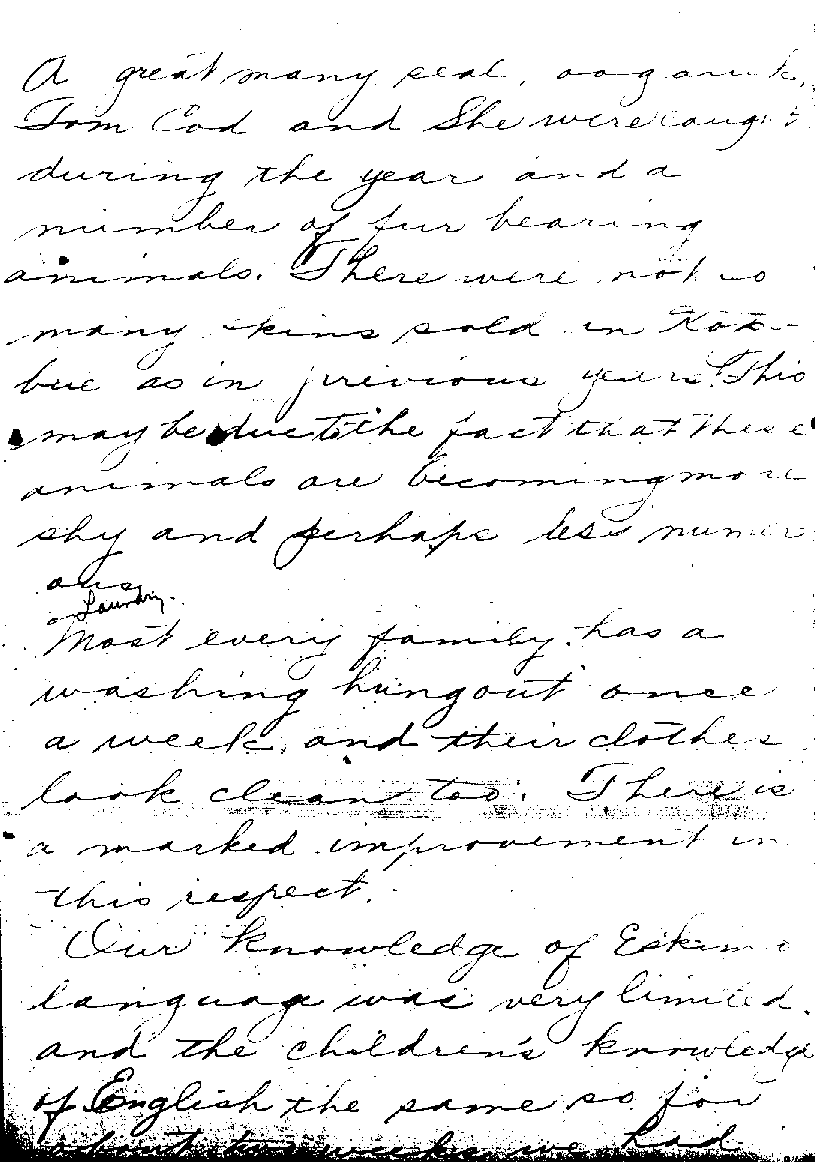 A great many seal, oogaruk,
Tom Cod and She were caught
during the year and a
number of fur bearing
animals. There were not so
many skins sold in Kotze-
bue as in previous years. This
may be due to the fact that these
animals are becoming more
shy and perhaps less numer
ous
Laundry.
Most every family has a
washing hung out once
a week, and their clothes
look clean too. There is
a marked improvement in
this respect.
Our knowledge of Eskimo
language was very limited.
and the children's knowledge
of English the same so for
about two weeks we had